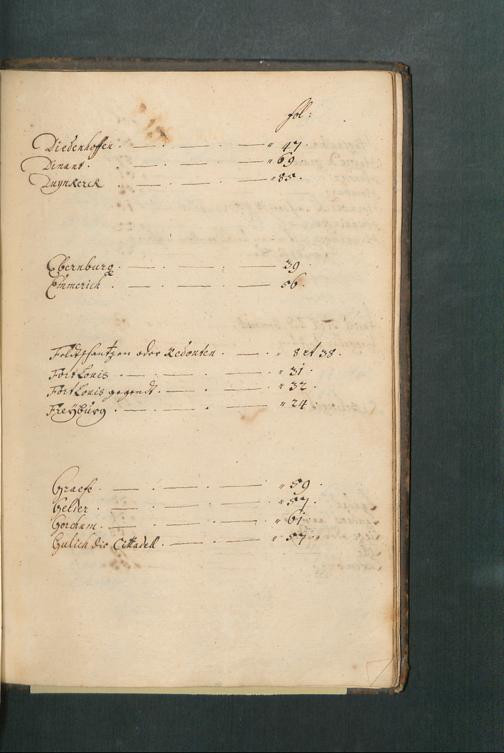 fol:
Diedenhoffen. 47
Dinant. 69
Duynkerck 85.
Ebernburg 39
Emmerich. 56.
Feldtschantzen oder Redouten. 8 et 38.
Fort Louis 31
Fort Louis gegendt. 32.
Freÿburg. 24
Graefe. 59
Gelder. 57.
Gorckum. 61
Gulich die Cittadell. 57.